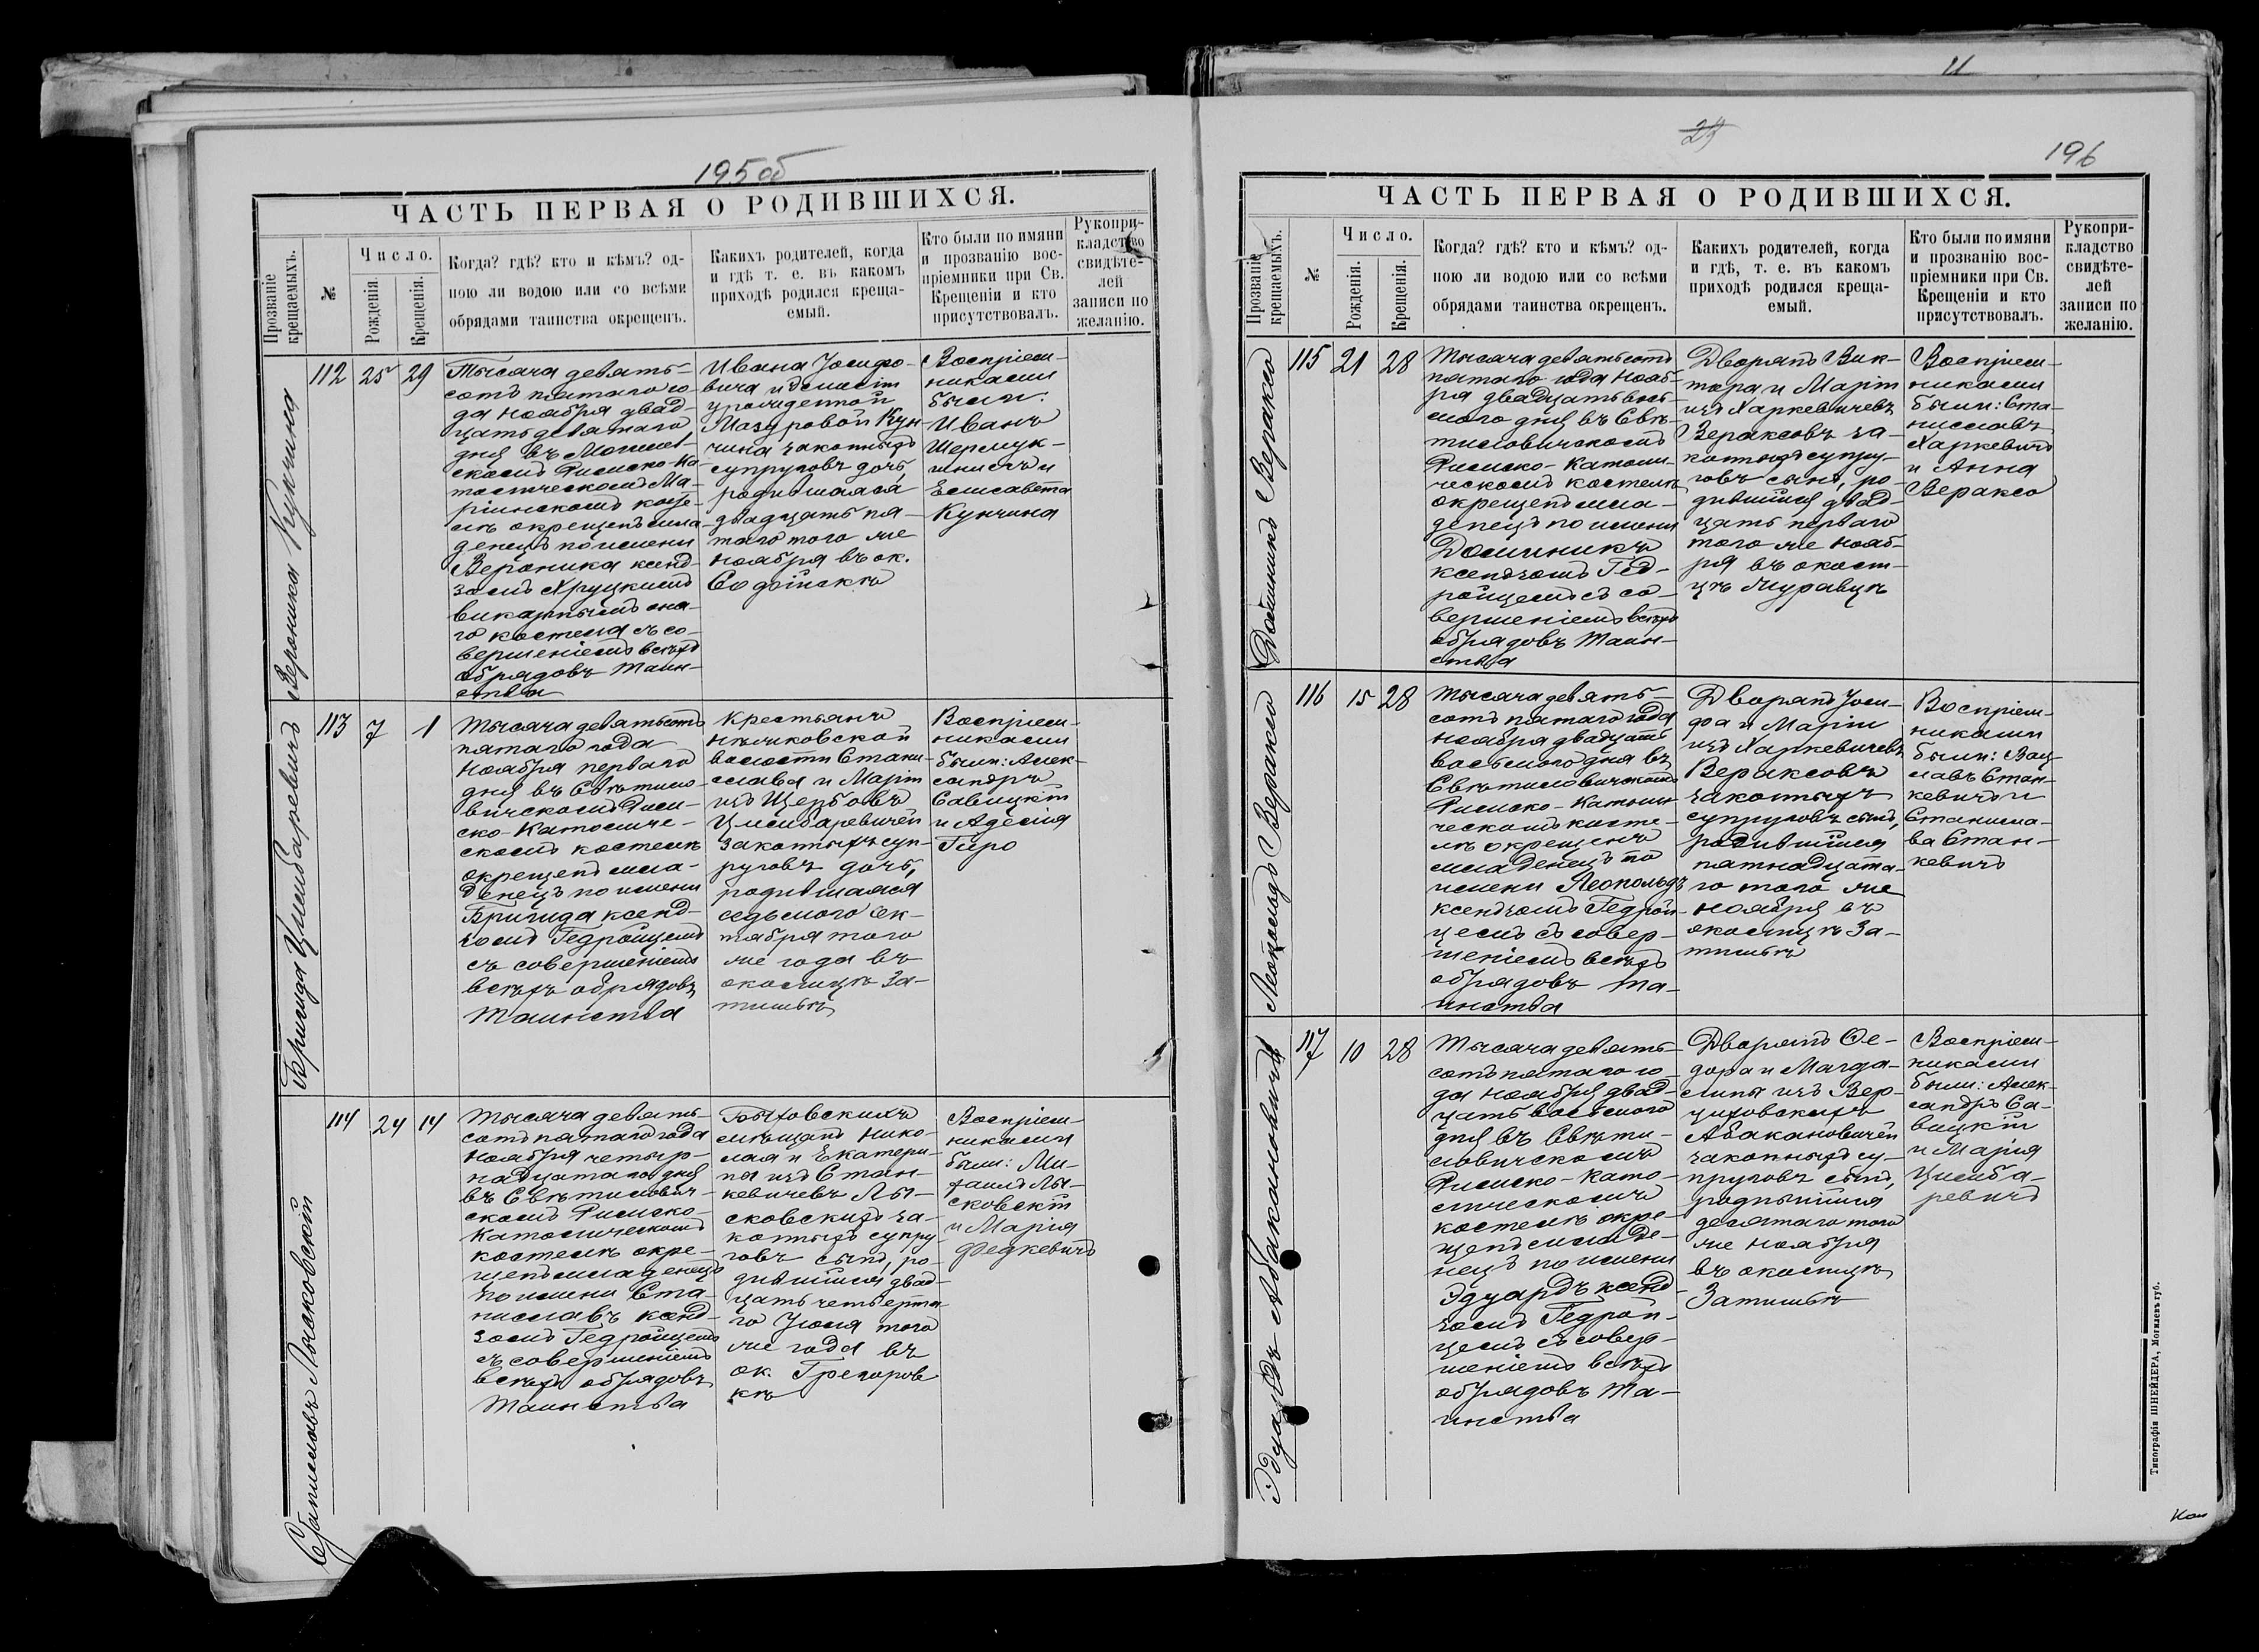 195об
ЧАСТЬ ПЕРВАЯ О РОДИВШИХСЯ.
Прозваніе
крещаемыхъ.
№
Число.
Рожденія.
Крещенія.
Когда? гдѣ? кто и кѣмъ? од-
ною ли водою или со всѣми
обрядами таинства окрещенъ.
Какихъ родителей, когда
и гдѣ т. е. въ какомъ
приходѣ родился креща-
емый.
Кто были по имяни
и прозванію вос-
пріемники при Св.
Крещеніи и кто
присутствовалъ.
Рукопри-
кладство
свидѣте-
лей
записи по
желанію.
Вероника Кунчина
112
25
29
Тысяча девять-
сотъ пятаго го-
да ноября двад-
цать девятаго
дня въ Могилев-
скомъ Римско-Ка-
толическомъ Ма-
ріинскомъ косте-
лѣ окрещенъ мла-
денецъ по имени
Вероника ксенд-
зомъ Хруцкимъ
викарнымъ она-
го костела съ со-
вершеніемъ всѣхъ
обрядовъ Таин-
ства
Ивана Іосифо-
вича и
урожденной
Мазуровой Кун-
чина законныхъ
супруговъ дочь,
родившаяся
двадцать пя-
таго того же
ноября въ ок.
Софійскѣ
Воспріем-
никами
были:
Иванъ
и
Елисавета
Кунчина
Бригида Цимбаревичъ
113
7
1
Тысяча девятьсотъ
пятаго года
ноября перваго
дня въ Свѣтило-
вичскомъ Рим-
ско-Католиче-
скомъ костелѣ
окрещенъ мла-
денецъ по имени
Бригида ксенд-
зомъ Гедройцемъ
съ совершеніемъ
всѣхъ обрядовъ
Таинства
Крестьянъ
Нѣжковской
волости Стани-
слава и Маріи
изъ Щербовъ
Цимбаревичей
законныхъ суп-
руговъ дочь,
родившаяся
седьмого Ок-
тября того
же года въ
околицѣ За-
тишьѣ
Воспріем-
никами
были: Алек-
сандръ
Савицкій
и Аделія
Гиро
Станиславъ Лысковскій
114
24
14
Тысяча девять-
сотъ пятаго года
ноября четыр-
надцатаго дня
въ Свѣтилович-
скомъ Римско-
Католическомъ
костелѣ окре-
щенъ младенецъ
по имени Ста-
ниславъ ксенд-
зомъ Гедройцемъ
съ совершеніемъ
всѣхъ обрядовъ
Таинства
Быховскихъ
мѣщанъ Нико-
лая и Екатери-
ны изъ Стан-
кевичевъ Лы-
сковскихъ за-
конныхъ супру-
говъ сынъ, ро-
дившійся двад-
цать четверта-
го Іюля того
же года въ
ок. Грегоров-
кѣ
Воспріем-
никами
были: Ми-
хаилъ Лы-
сковскій
и Марія
Федкевичъ
11
29
196
ЧАСТЬ ПЕРВАЯ О РОДИВШИХСЯ.
Прозваніе
крещаемыхъ.
№
Число.
Рожденія.
Крещенія.
Когда? гдѣ? кто и кѣмъ? од-
ною ли водою или со всѣми
обрядами таинства окрещенъ.
Какихъ родителей, когда
и гдѣ, т. е. въ какомъ
приходѣ родился креща-
емый.
Кто были по имяни
и прозванію вос-
пріемники при Св.
Крещеніи и кто
присутствовалъ.
Рукопри-
кладство
свидѣте-
лей
записи по
желанію.
Доминикъ Вераксо
115
21
28
Тысяча девятьсотъ
пятаго года нояб-
ря двадцать вось-
мого дня въ Свѣ-
тиловичскомъ
Римско-Католи-
ческомъ костелѣ
окрещенъ мла-
денецъ по имени
Доминикъ
ксендзомъ Гед-
ройцемъ съ со-
вершеніемъ всѣхъ
обрядовъ Таин-
ства
Дворянъ Вик-
тора и Маріи
изъ Харкевичевъ
Вераксовъ за-
конныхъ супру-
говъ сынъ, ро-
дившійся двад-
цать перваго
того же нояб-
ря въ околи-
цѣ Журавцѣ
Воспріем-
никами
были: Ста-
ниславъ
Харкевичъ
и Анна
Вераксо
Леопольдъ Вераксо
116
15
28
Тысяча девять-
сотъ пятаго года
ноября двадцать
восьмого дня въ
Свѣтиловичскомъ
Римско-Католи-
ческомъ косте-
лѣ окрещенъ
младенецъ по
имени Леопольдъ
ксендзомъ Гедрой-
цемъ съ совер-
шеніемъ всѣхъ
обрядовъ Та-
инства
Дворянъ Іоси-
фа и Маріи
изъ Харкевичевъ
Вераксовъ
законныхъ
супруговъ сынъ,
родившійся
пятнадцата-
го того же
ноября въ
околицѣ За-
тишьѣ
Воспріем-
никами
были: Вац-
лавъ Стан-
кевичъ и
Станисла-
ва Стан-
кевичъ
Эдуардъ Абакановичъ
117
10
28
Тысяча девять-
сотъ пятаго го-
да ноября двад-
цать восьмого
дня въ Свѣти-
ловичскомъ
Римско-Като-
лическомъ
костелѣ окре-
щенъ младе-
нецъ по имени
Эдуардъ ксенд-
зомъ Гедрой-
цемъ съ совер-
шеніемъ всѣхъ
обрядовъ Та-
инства
Дворянъ Ѳе-
дора и Магда-
лины изъ Вер-
циховскихъ
Абакановичей
законныхъ су-
пруговъ сынъ,
родившійся
десятаго того
же ноября
въ околицѣ
Затишьѣ
Воспріем-
никами
были: Алек-
сандръ Са-
вицкій
и Марія
Цимба-
ревичъ
Типографія ШНЕЙДЕРА, Могилевъ губ.